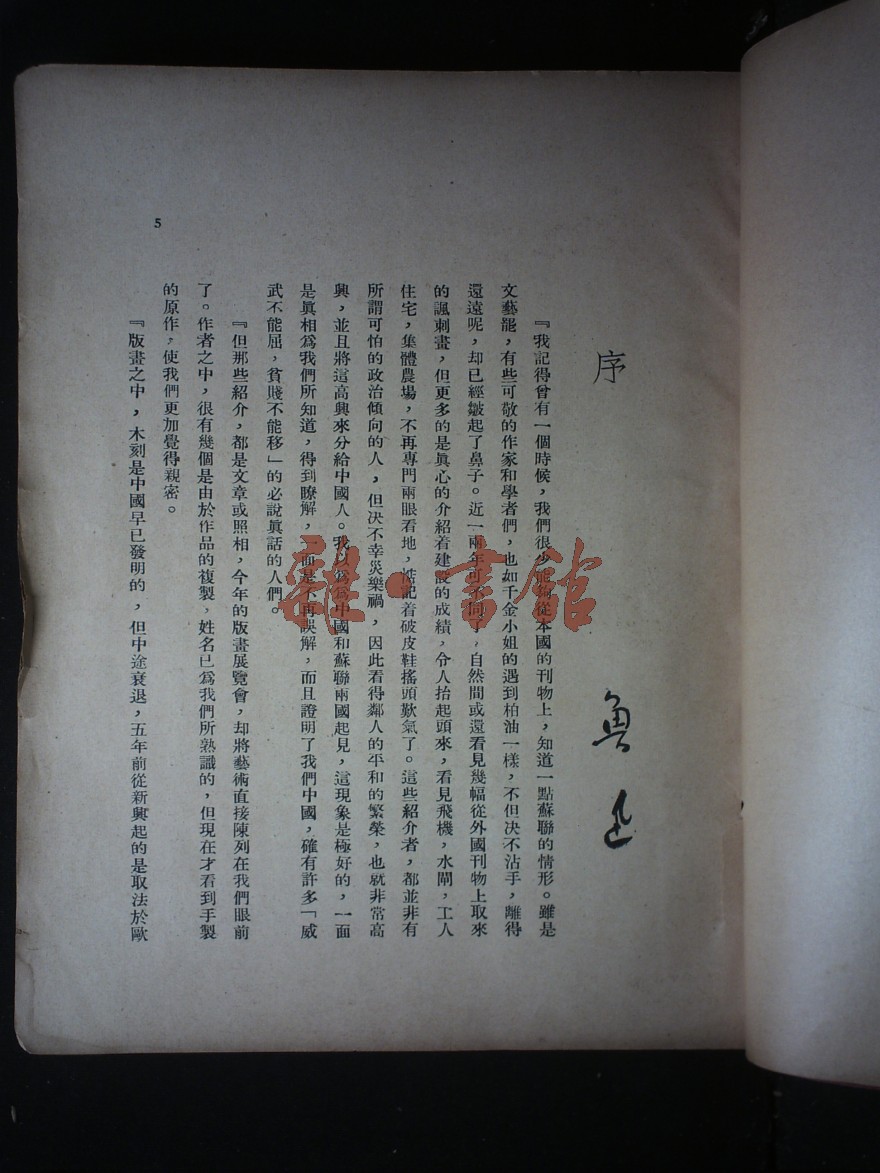 序
魯迅
『我記得曾有一個時候，我們很少能夠從本國的刊物上，知道一點蘇聯的情形。雖是
文藝罷，有些可敬的作家和學者們，也如千金小姐的遇到柏油一樣，不但決不沾手，離得
還遠呢，却已經皺起了鼻子。近一兩年可不同了，自然間或還看見幾幅從外國刊物上取來
的諷刺畫，但更多的是眞心的介紹着建設的成績，令人抬起頭來，看見飛機，水閘，工人
住宅，集體農場，不再專門兩眼看地，惦記着破皮鞋搖頭歎氣了。這些紹介者，都並非有
所謂可怕的政治傾向的人，但決不幸災樂禍，因此看得鄰人的平和的繁榮，也就非常高
興，並且將這高興來分給中國人。我以爲爲中國和蘇聯兩國起見，這現象是極好的，一面
是眞相爲我們所知道，得到瞭解，一面是不再誤解，而且證明了我們中國，確有許多「威
武不能屈，貧賤不能移」的必說眞話的人們。
『但那些紹介，都是文章或照相，今年的版畫展覽會，却將藝術直接陳列在我們眼前
了。作者之中，很有幾個是由於作品的複製，姓名已爲我們所熟識的，但現在才看到手製
的原作，使我們更加覺得親密。
『版畫之中，木刻是中國早已發明的，但中途衰退，五年前從新興起的是取法於歐
5
雜·書館